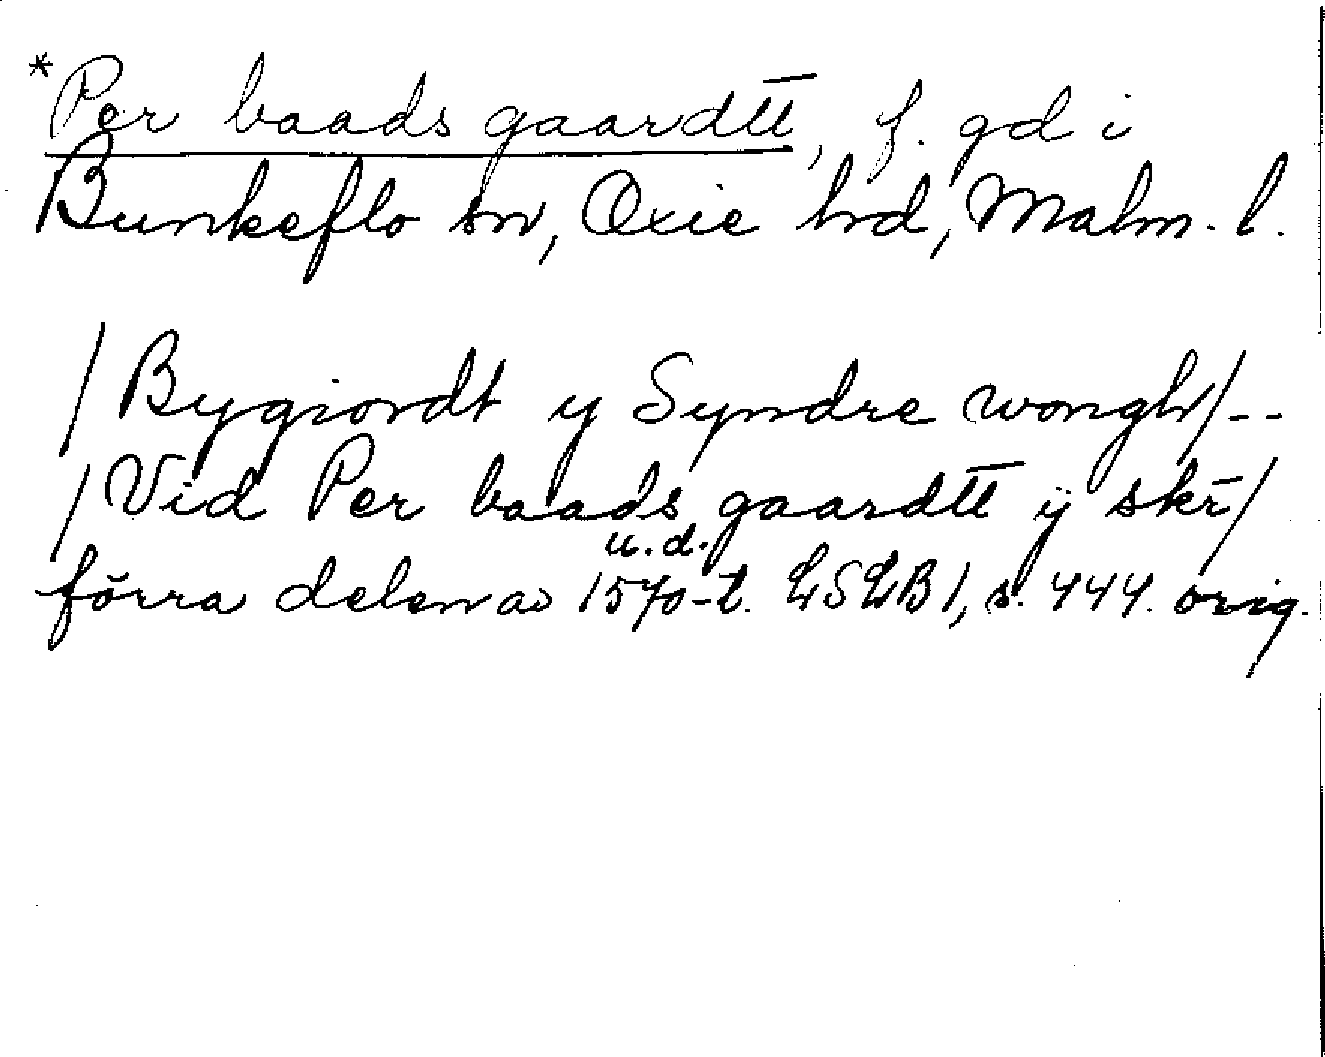 *Per baads gaardtt̅, f. gd i
Bunkeflo sn, Oxie hrd, Malm. l.
/Bygiordt y Syndre wongh/--
/Vid Per baads gaardtt̅ ÿ skr̅/
u.d.
förra delen av 1570-t. LSLB 1, s. 444. orig.